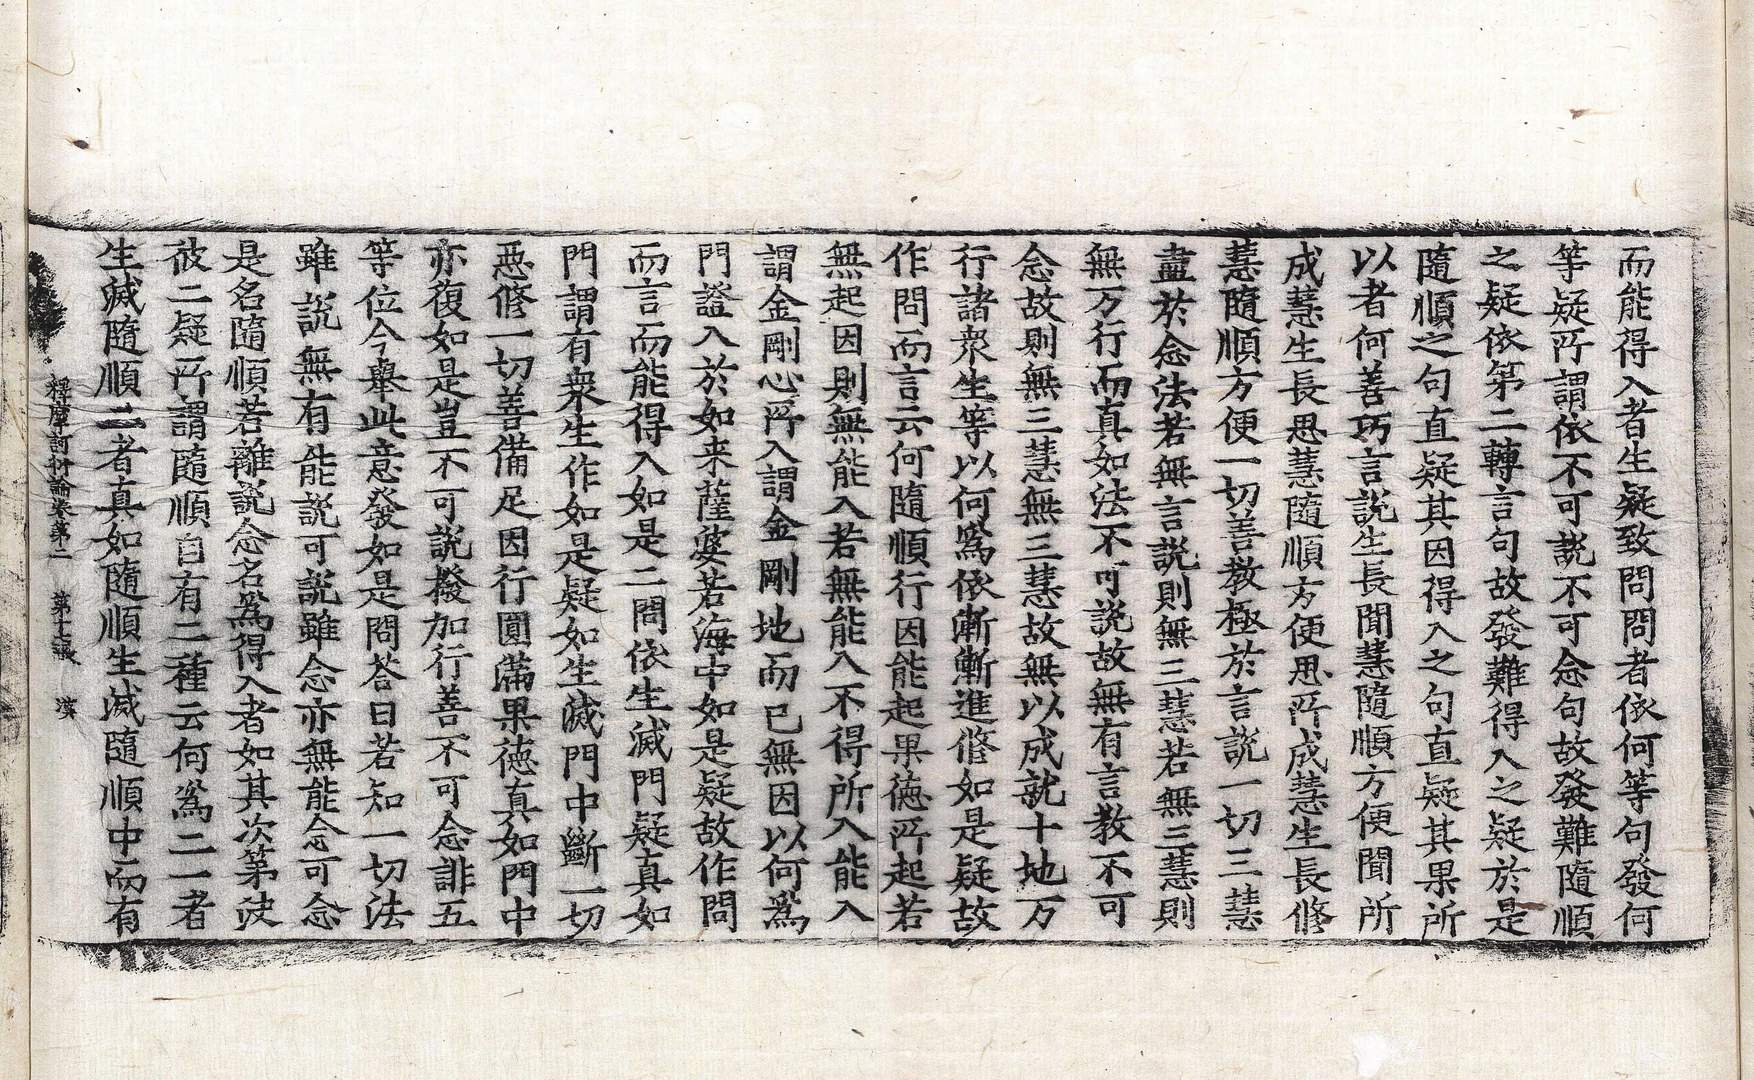 而能得入者生疑致問問者依何等句發何
等疑所謂依不可說不可念句故發難隨順
之疑依第二轉言句故發難得入之疑於是
隨順之句直疑其因得入之句直疑其果所
以者何善巧言說生長聞慧隨順方便聞所
成慧生長思慧隨順方便思所成慧生長修
慧隨順方便一切善教極於言說一切三慧
盡於念法若無言說則無三慧若無三慧則
無万行而真如法不可說故無有言教不可
念故則無三慧無三慧故無以成就十地万
行諸衆生等以何爲依漸漸進修如是疑故
作問而言云何隨順行因能起果德所起若
無起因則無能入若無能入不得所入能入
謂金剛心所入謂金剛地而已無因以何爲
門證入於如来薩婆若海中如是疑故作問
而言而能得入如是二問依生滅門疑真如
門謂有衆生作如是疑如生滅門中斷一切
惡修一切善備足因行圓滿果德真如門中
亦復如是豈不可說撥加行善不可念誹五
等位今舉此意發如是問荅曰若知一切法
雖說無有能說可說雖念亦無能念可念
是名隨順若離說念名爲得入者如其次第决
彼二疑所謂隨順自有二種云何爲二一者
生滅隨順二者真如隨順生滅隨順中而有
釋摩訶衍論卷第二　第十張　漠